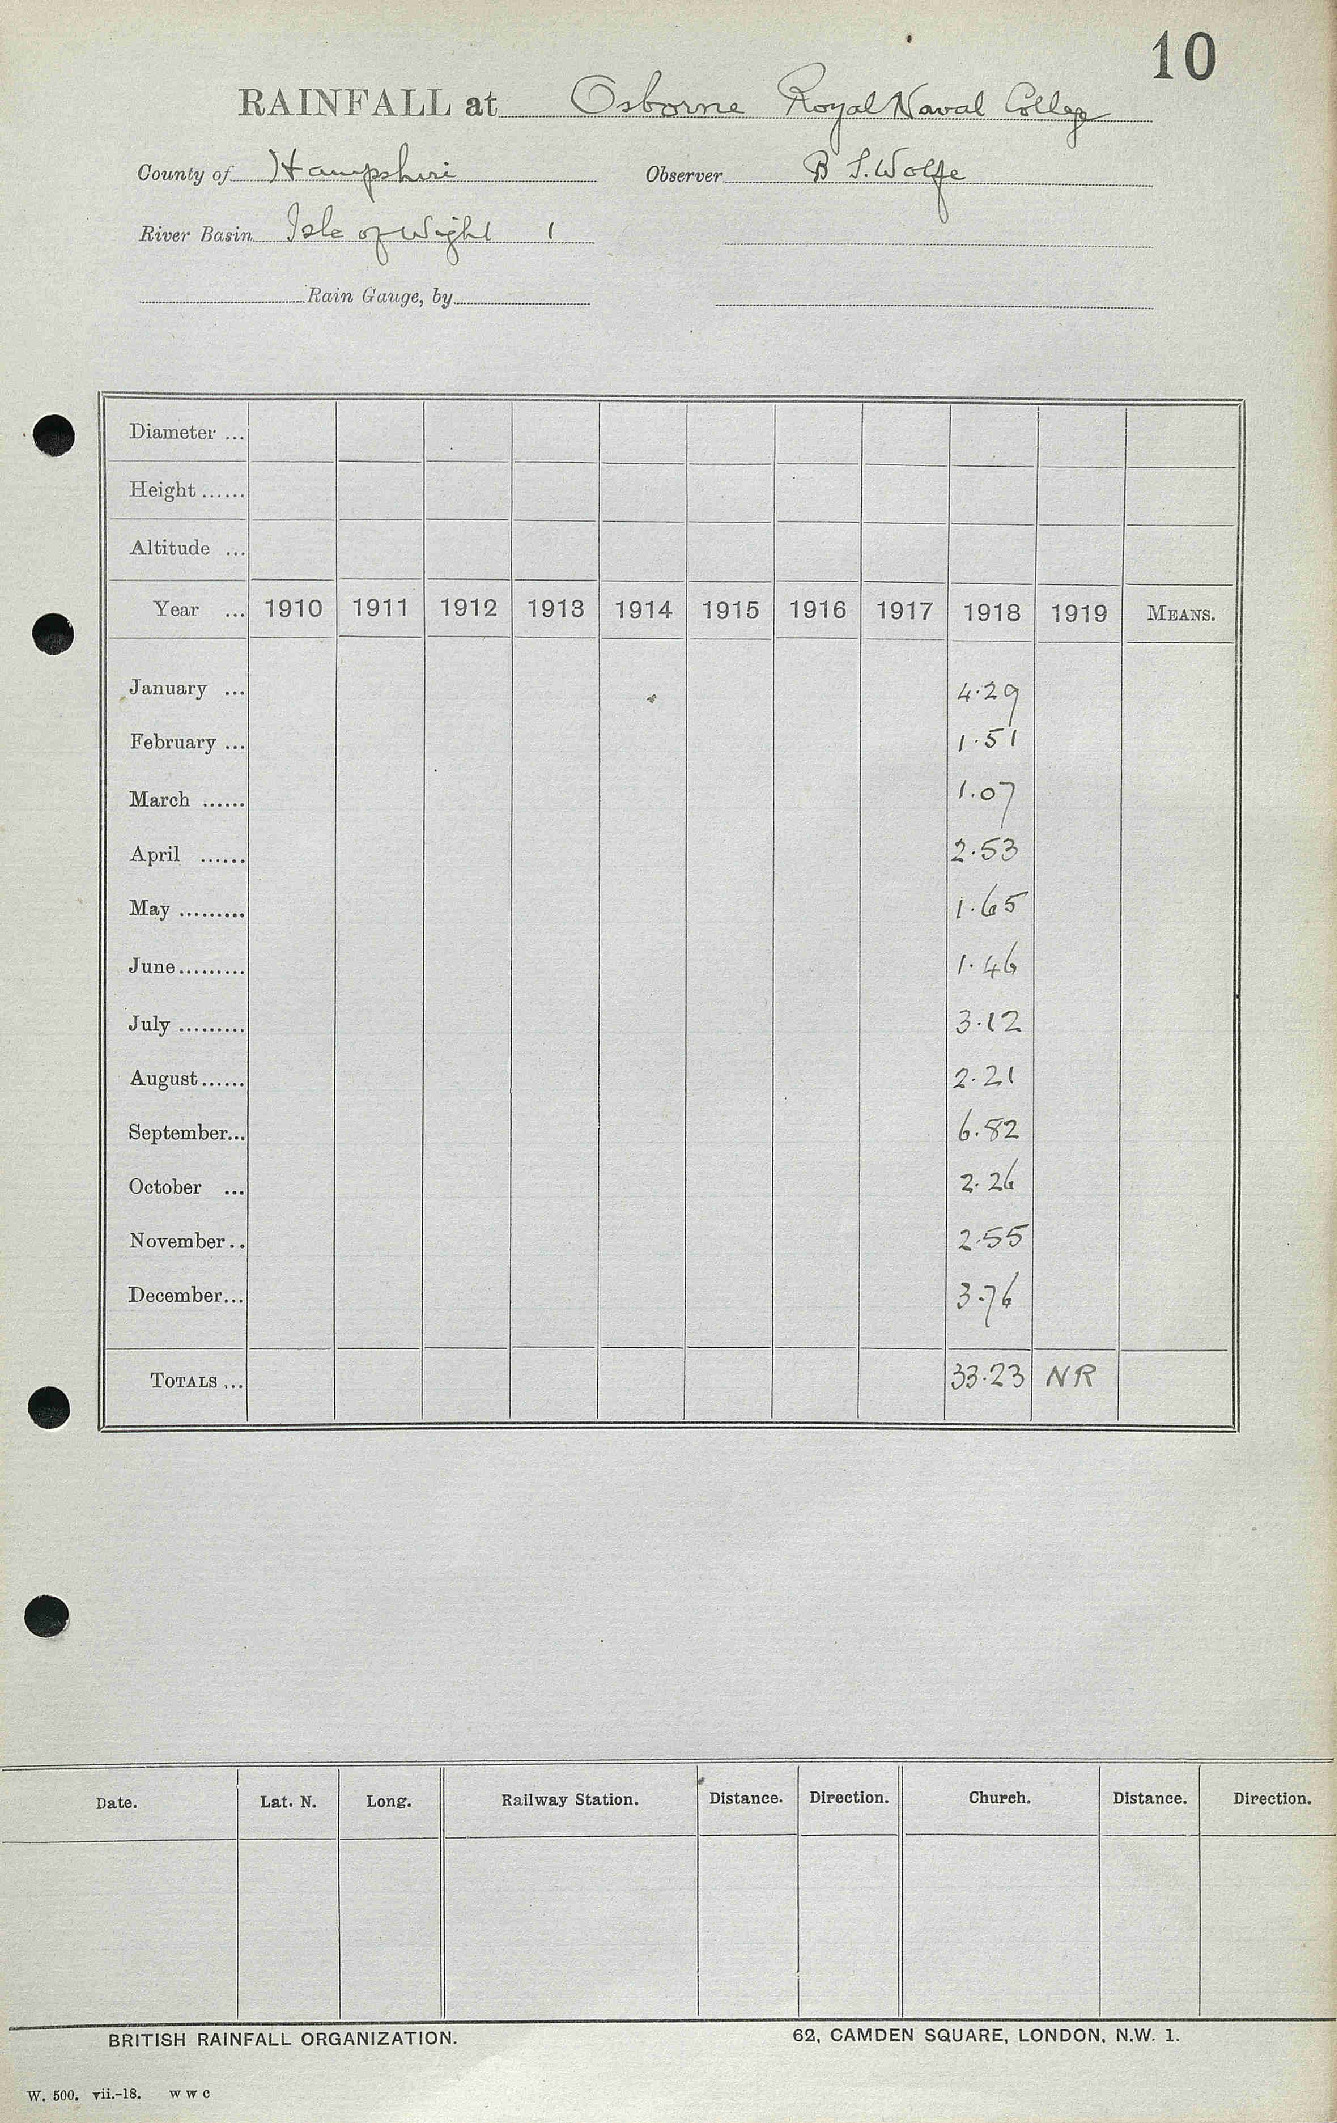 10
RAINFALL at Osborne Royal Naval College
County of Hampshire Observer B S. Wolfe
River Basin Isle of Wight 1
Rain Gauge, by
Diameter ...
Height ......
Altitude ...
Year ... 1910 1911 1912 1913 1914 1915 1916 1917 1918 1919 MEANS.
January ... 4.29
February ... 1.51
March ...... 1.07
April ...... 2.53
May ......... 1.65
June......... 1.46
July ......... 3.12
August...... 2.21
September... 6.82
October ... 2.26
November.. 2.55
December... 3.76
TOTALS ... 33.23 NR
Date. Lat. N. Long. Railway Station. Distance. Direction. Church. Distance. Direction.
BRITISH RAINFALL ORGANIZATION. 62, CAMDEN SQUARE, LONDON, N.W. 1.
W. 500. vii.-18. w w c